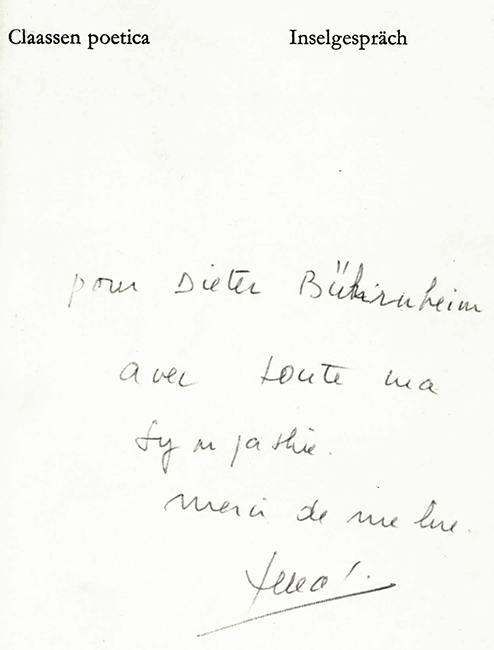 Claassen poetica Inselgespräch
pour Dieter
avec toute ma
sympathie.
merci de me lire.